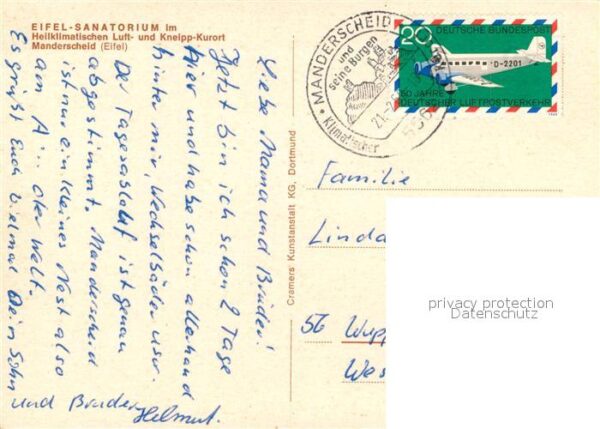 EIFEL-SANATORIUM im
Heilklimatischen Luft- und Kneipp-Kurort
Manderscheid (Eifel)
Liebe Mama und Brüder!
Jetzt bin ich schon 2 Tage
hier und habe schon allerhand
hinter mir, Wechselbäder usw.
Der Tagesablauf ist genau
abgestimmt. Manderscheid
ist nur ein kleines Nest also
am A... der Welt.
Es grüßt Euch vielmal Dein Sohn
und Bruder Helmut.
Cramers Kunstanstalt KG, Dortmund
MANDERSCHEID
und
seine Burgen
21.
Klimatischer
20
DEUTSCHE BUNDESPOST
D-2201
50 JAHRE
DEUTSCHER LUFTPOSTVERKEHR
Familie
Linda
56 Wupp
Wes
privacy protection
Datenschutz